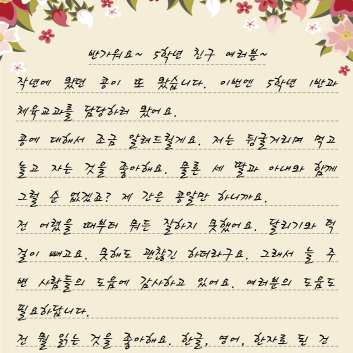 반가워요~ 5학년 친구 여러분~
작년에 왔던 콩이 또 왔습니다. 이번엔 5학년 1반과
체육교과를 담당하러 왔어요.
콩에 대해서 조금 알려드릴게요. 저는 뒹굴거리며 먹고
놀고 자는 것을 좋아해요. 물론 세 딸과 아내와 함께
그럴 순 없겠죠? 제 간은 콩알만 하니까요.
전 어렸을 때부터 뭐든 잘하지 못했어요. 달리기와 턱
걸이 빼고요. 못해도 괜찮긴 하더라구요. 그래서 늘 주
변 사람들의 도움에 감사하고 있어요. 여러분의 도움도
필요하답니다.
전 뭘 읽는 것을 좋아해요. 한글, 영어, 한자로 된 건